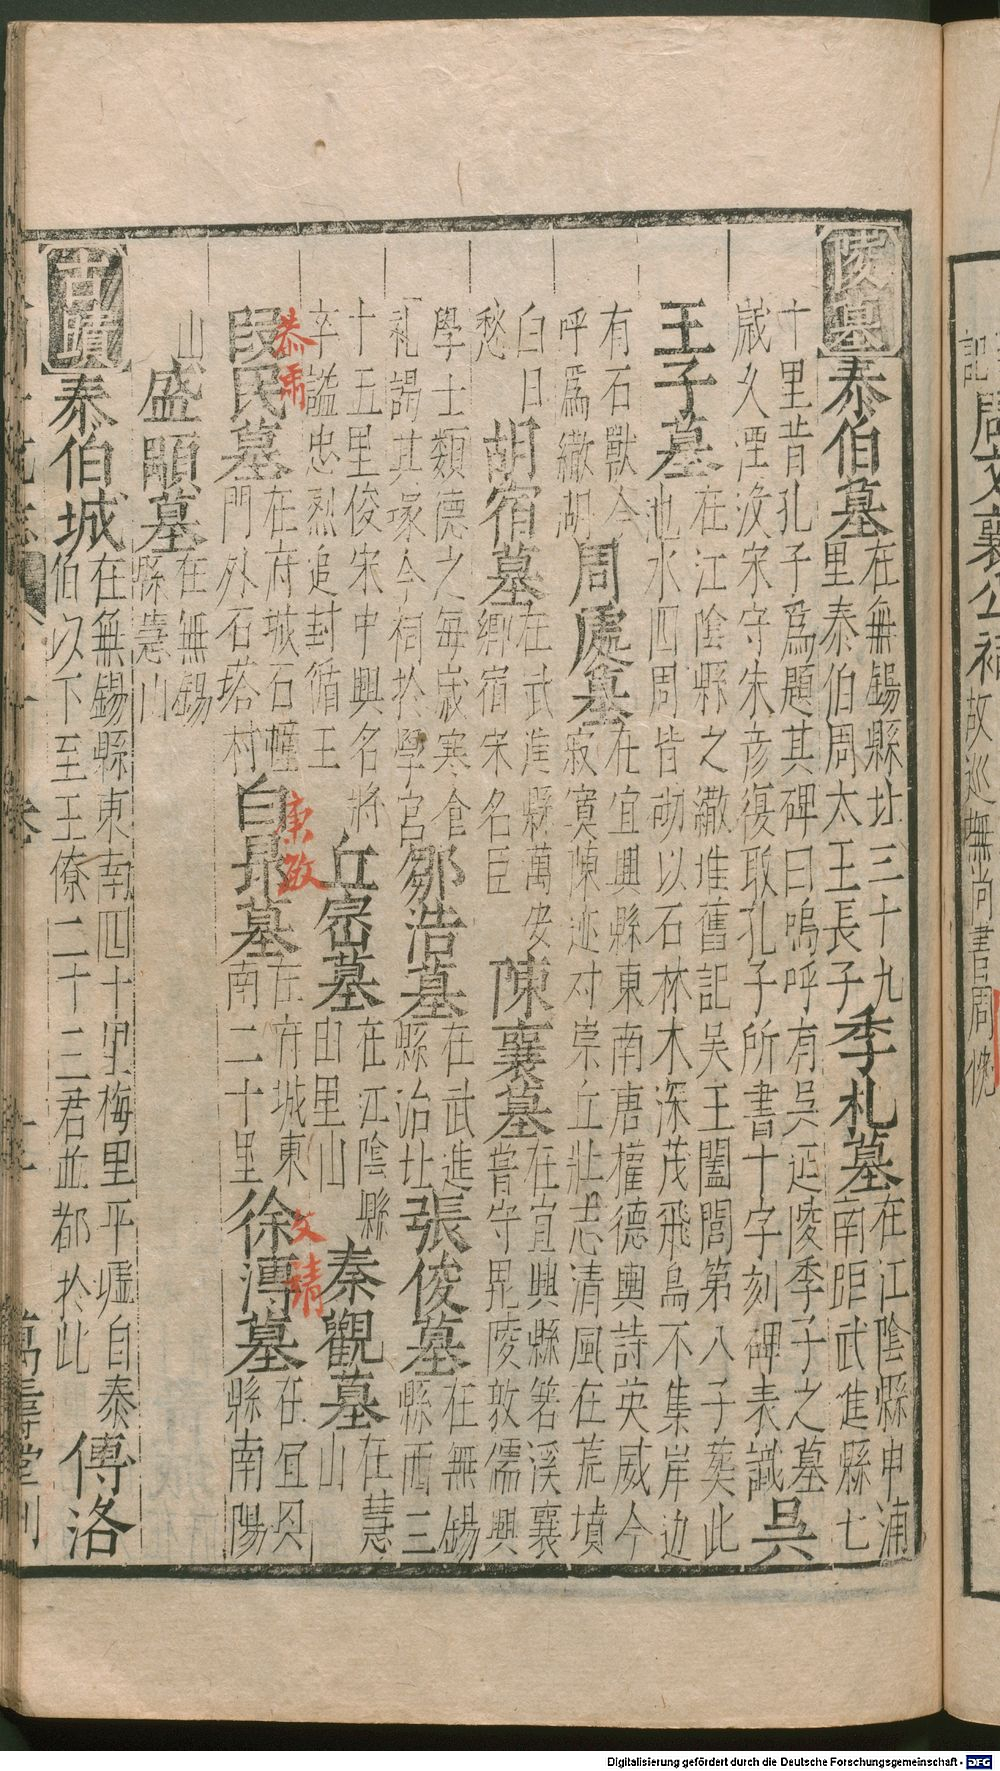 記周文襄公祠故巡撫尚書周忱
陵墓
泰伯墓在無錫縣北三十九里泰伯周太王長子
季札墓在江陰縣申浦南距武進縣七十里昔孔子爲題其碑曰嗚呼有吳延陵季子之墓歲久湮沒宋守朱彥復取孔子所書十字刻碑表識
吳王子墓在江陰縣之繖堆舊記吳王闔閭第八子葬此池水四周皆砌以石林木深茂飛鳥不集岸边有石獸今呼爲繖湖
周處墓在宜興縣東南唐權德輿詩英威今寂寞陳迹对崇丘壯志清風在荒墳白日愁
胡宿墓在武進縣萬安鄉宿宋名臣
陳襄墓在宜興縣箬溪襄嘗守毘陵敦儒興學士類德之每歲寒食禮謁其塚今祠於學宮
鄒浩墓在武進縣治北
張俊墓在無錫縣西三十五里俊宋中興名將卒謚忠烈追封循王
丘崈墓在江陰縣由里山
秦觀墓在慧山
段民墓在府城石幢門外石塔村
恭肅
白昂墓在府城東南二十里
康敏
徐溥墓在宜興縣南陽山
文靖
盛顒墓在無錫縣慧山
古蹟
泰伯城在無錫縣東南四十里梅里平墟自泰伯以下至王僚二十三君並都於此
傅洛
萬壽堂刊
Digitalisierung gefördert durch die Deutsche Forschungsgemeinschaft - DFG